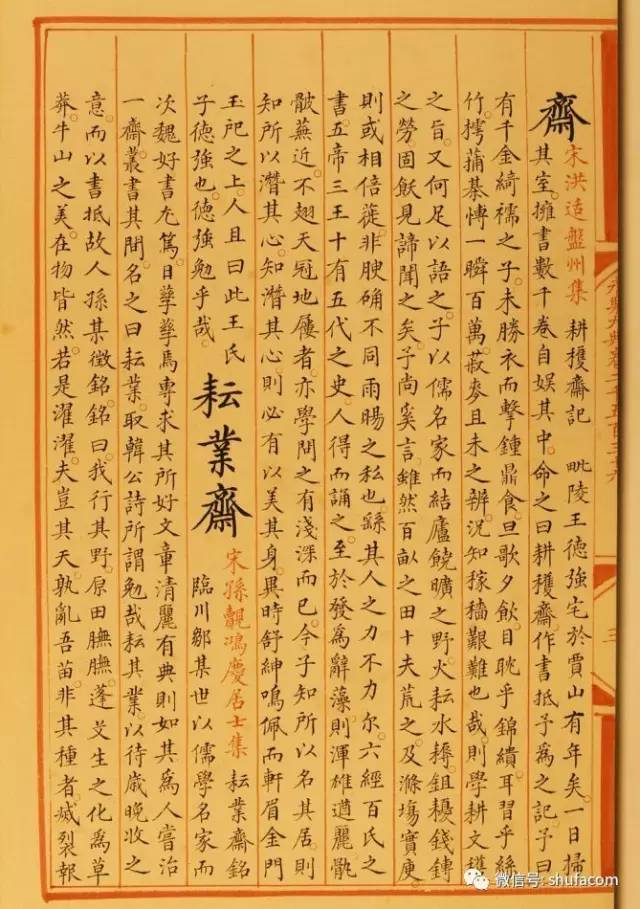 永樂大典卷二千五百三十六
三
齋
宋洪适盤州集 耕穫齋記 毗陵王德強宅於賈山有年矣一日掃
其室擁書數千卷自娛其中命之曰耕穫齋作書抵予為之記予曰
有千金綺襦之子未勝衣而擊鍾鼎食旦歌夕飲目眈乎錦繢耳習乎絲
竹摴蒱棊愽一瞬百萬菽麥且未之辨況知稼穡艱難也哉則學耕文穫
之旨又何足以語之子以儒名家而結廬饒曠之野火耘水耨鉏耰錢鎛
之勞固飫見諦聞之矣予尚奚言雖然百畝之田十夫荒之及滌場實庾
則或相倍蓰非腴确不同雨暘之私也繇其人之力不力尔六經百氏之
書五帝三王十有五代之史人得而誦之至於發為辭藻則渾雄遒麗骩
骳蕪近不翅天冠地屨者亦學問之有淺深而已今子知所以名其居則
知所以潛其心知潛其心則必有以美其身異時舒紳鳴佩而軒眉金門
玉戺之上人且曰此王氏
子德強也德強勉乎哉
耘業齋
宋孫覿鴻慶居士集 耘業齋銘
臨川鄒某世以儒學名家而
次魏好書尤篤日孳孳焉專求其所好文章清麗有典則如其為人嘗治
一齋叢書其間名之曰耘業取韓公詩所謂勉哉耘其業以待歲晚收之
意而以書抵故人孫某徵銘銘曰我行其野原田膴膴蓬艾生之化為草
莽牛山之美在物皆然若是濯濯夫豈其天孰亂吾苗非其種者烕裂報
微信号: shufacom